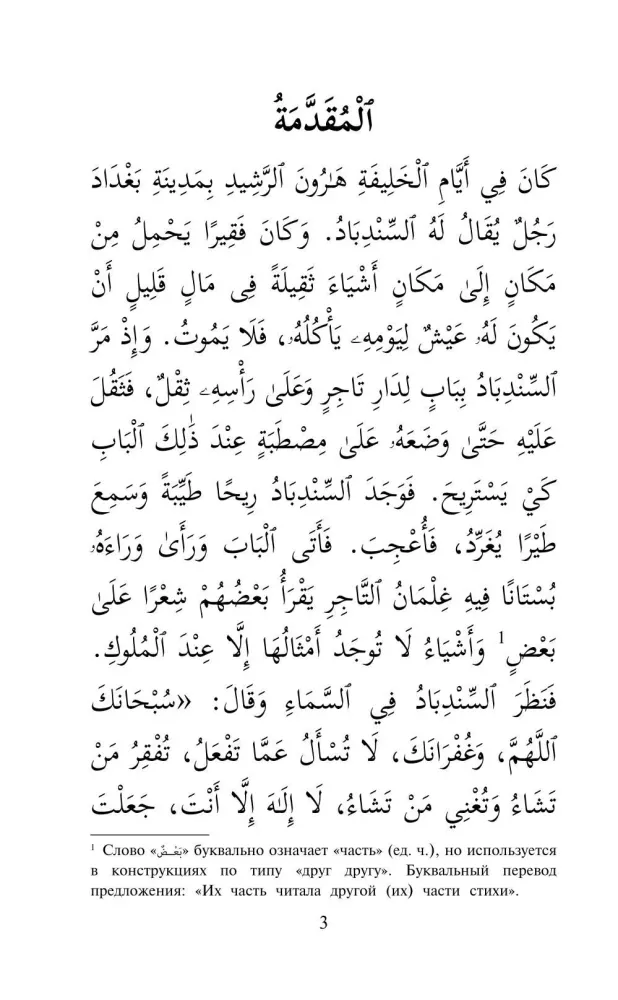 ٱلْمُقَدَّمَةُ
كَانَ فِي أَيَّامِ ٱلْخَلِيفَةِ هَـٰرُونَ ٱلرَّشِيدِ بِمَدِينَةِ بَغْدَادَ
رَجُلٌ يُقَالُ لَهُ ٱلسِّنْدِبَادُ. وَكَانَ فَقِيرًا يَحْمِلُ مِنْ
مَكَانٍ إِلَىٰ مَكَانٍ أَشْيَاءَ ثَقِيلَةً فِى مَالٍ قَلِيلٍ أَنْ
يَكُونَ لَهُۥ عَيْشٌ لِيَوْمِهِۦ يَأْكُلُهُۥ، فَلَا يَمُوتُ. وَإِذْ مَرَّ
ٱلسِّنْدِبَادُ بِبَابٍ لِدَارِ تَاجِرٍ وَعَلَىٰ رَأْسِهِۦ ثِقْلٌ، فَثَقُلَ
عَلَيْهِ حَتَّىٰ وَضَعَهُۥ عَلَىٰ مِصْطَبَةٍ عِنْدَ ذَٰلِكَ ٱلْبَابِ
كَيْ يَسْتَرِيحَ. فَوَجَدَ ٱلسِّنْدِبَادُ رِيحًا طَيِّبَةً وَسَمِعَ
طَيْرًا يُغَرِّدُ، فَأُعْجِبَ. فَأَتَى ٱلْبَابَ وَرَأَىٰ وَرَاءَهُۥ
بُسْتَانًا فِيهِ غِلْمَانُ ٱلتَّاجِرِ يَقْرَأُ بَعْضُهُمْ شِعْرًا عَلَىٰ
بَعْضٍ¹ وَأَشْيَاءُ لَا تُوجَدُ أَمْثَالُهَا إِلَّا عِنْدَ ٱلْمُلُوكِ.
فَنَظَرَ ٱلسِّنْدِبَادُ فِي ٱلسَّمَاءِ وَقَالَ: «سُبْحَانَكَ
ٱللَّهُمَّ، وَغُفْرَانَكَ، لَا تُسْأَلُ عَمَّا تَفْعَلُ، تُفْقِرُ مَنْ
تَشَاءُ وَتُغْنِي مَنْ تَشَاءُ، لَا إِلَـٰهَ إِلَّا أَنْتَ، جَعَلْتَ
¹ Слово «بَعْـضٌ» буквально означает «часть» (ед. ч.), но используется
в конструкциях по типу «друг другу». Буквальный перевод
предложения: «Их часть читала другой (их) части стихи».
3